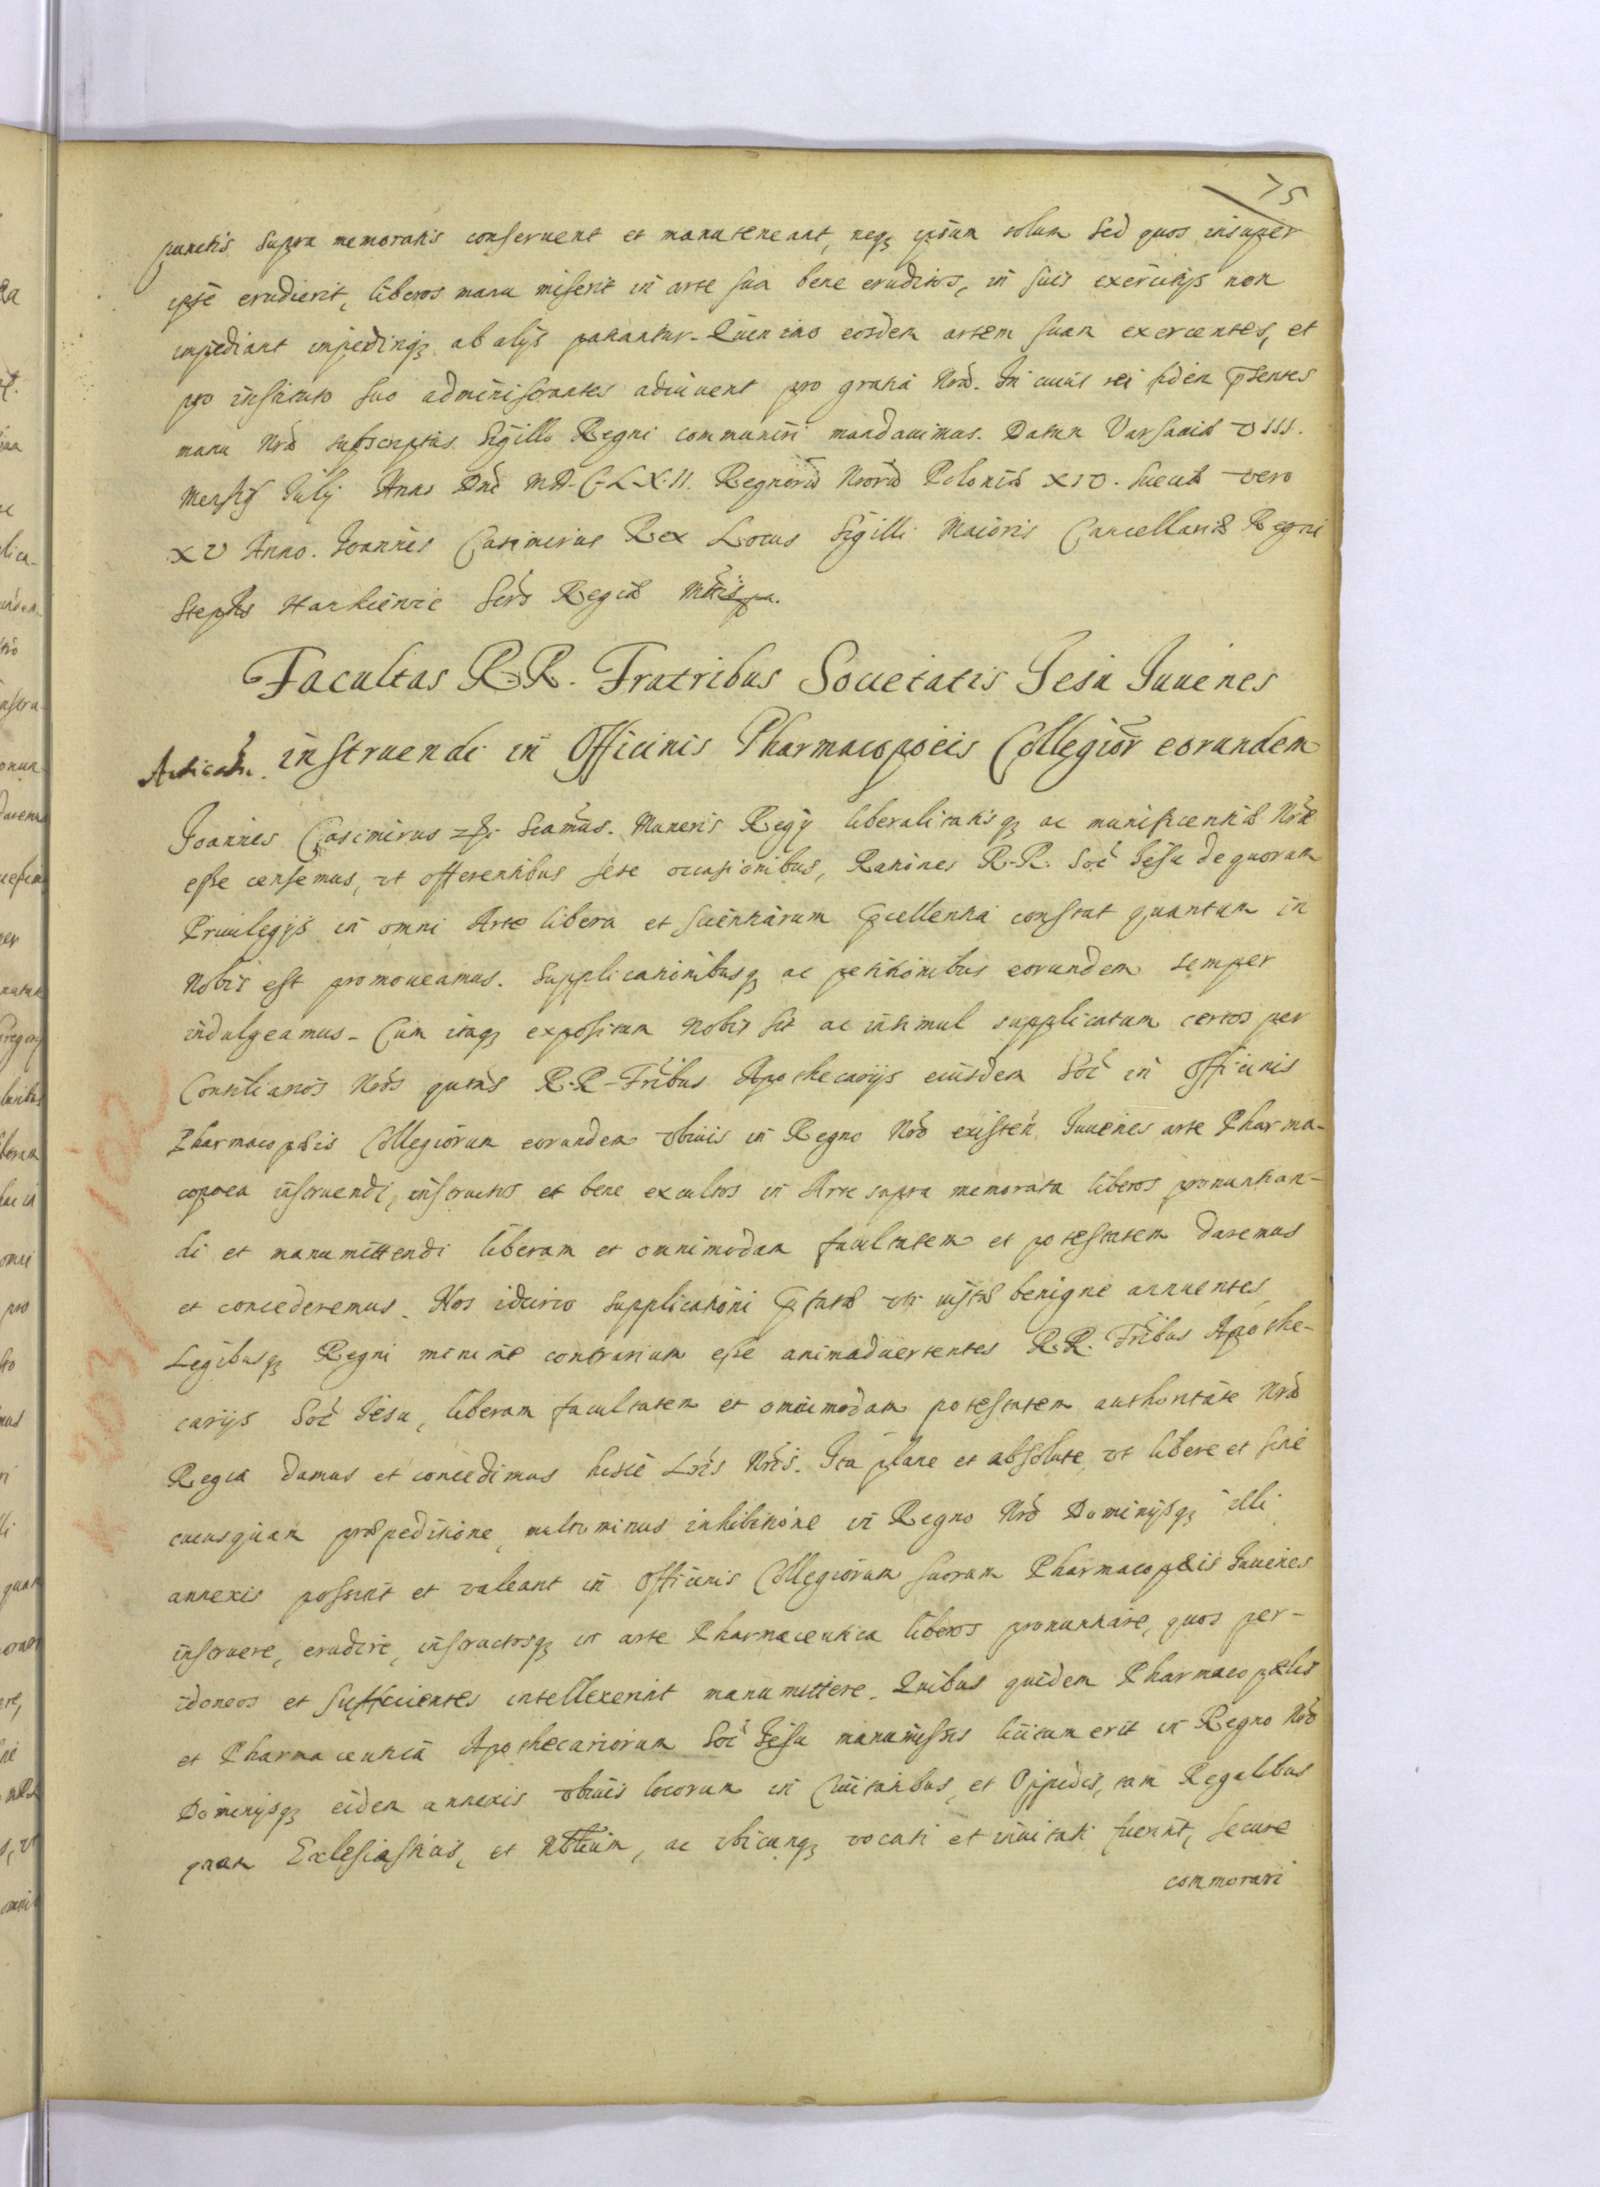 75
punctis supra memoratis conseruent et manuteneant, neq; ipsum solum sed quos insuper
ipse erudierit, liberos manu miserit in arte sua bene eruditos, in suis exercitijs non
impediant impediriq; ab alijs patiantur. Quin imo eosdem artem suam exercentes, et
pro instituto suo administrantes adiuuent pro gratia Nra. In cuius rei fidem pñtes
manu Nra subscriptas Sigillo Regni communiri mandauimus. Datum Varsauiæ VIII.
Mensis Julij Anno Dni M.D.C.L.X.II. Regnorũ Nrorũ Poloniæ XIV. Sueciæ vero
XV Anno. Joannes Casimirus Rex Locus Sigilli Maioris Cancellariæ Regni
Stephs Hankiewic Secrs Regiæ Mttis
Facultas R.R. Fratribus Societatis Jesu Juuenes
instruendi in Officinis Pharmacopoeis Collegior eorundem
Joannes Casimirus Scamus. Muneris Regij liberalitatisq; ac munificentiæ Nræ
esse censemus, vt offerentibus sese occasionibus, Rahines R.R. Soc Jesu de quorum
Priuilegijs in omni Arte libera et scientiarum excellentia constat quantum in
Nobis est promoueamus. Supplicationibusq; ac petitionibus eorundem semper
indulgeamus. Cum itaq; expositum Nobis sit ac insimul supplicatum certos per
Consiliarios Nros quatus R.R. Fribus Apothecarijs eiusdem Soc in Officinis
Pharmacopæis Collegiorum eorundem vbiuis in Regno Nro existen. Juuenes arte Pharma-
copoea instruendi, instructos et bene excultos in Arte supra memorata liberos pronuntian-
di et manumittendi liberam et omnimodam facultatem et potestatem daremus
et concederemus. Nos idcirco supplicationi vti iustæ benigne annuentes,
Legibusq; Regni minime contrarium esse animaduertentes R.R. Fribus Apothe-
carijs Soc Jesu, liberam facultatem et omnimodam potestatem authoritate Nra
Regia damus et concedimus hisce Lris Nris. Ita plane et absolute, vt libere et sine
cuiusquam præpeditione, multo minus inhibitione in Regno Nro Dominijsq; illi
annexis possint et valeant in Officinis Collegiorum suorum Pharmacopæis Juuenes
instruere, erudire, instructosq; in arte Pharmaceutica liberos pronuntiare, quos per-
idoneos et sufficientes intellexerint manumittere. Quibus quidem Pharmacopælis
et Pharmaceutica Apothecariorum Soc Jesu manumissis licitum erit in Regno Nro
Dominijsq; eidem annexis vbiuis locorum in Ciuitatibus, et Oppidis, tam Regalibus
quam Exlesiasticis, et Nbliũm, ac vbicunq; vocati et inuitati fuerint, secure
commorari